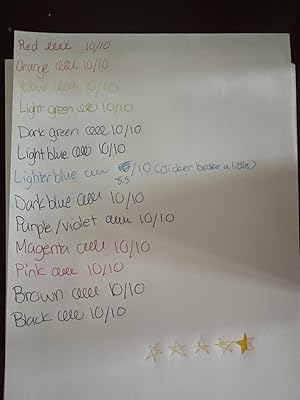 Red eeee 10/10
Orange eeee 10/10
Yellow eeee 10/10
Light green eee 10/10
Dark green eeee 10/10
Light blue eeee 10/10
Lighter blue 8.5/10 (clicker broke a little)
Dark blue eeee 10/10
Purple/violet eeee 10/10
Magenta eeee 10/10
Pink eeee 10/10
Brown eeee 10/10
Black eeee 10/10